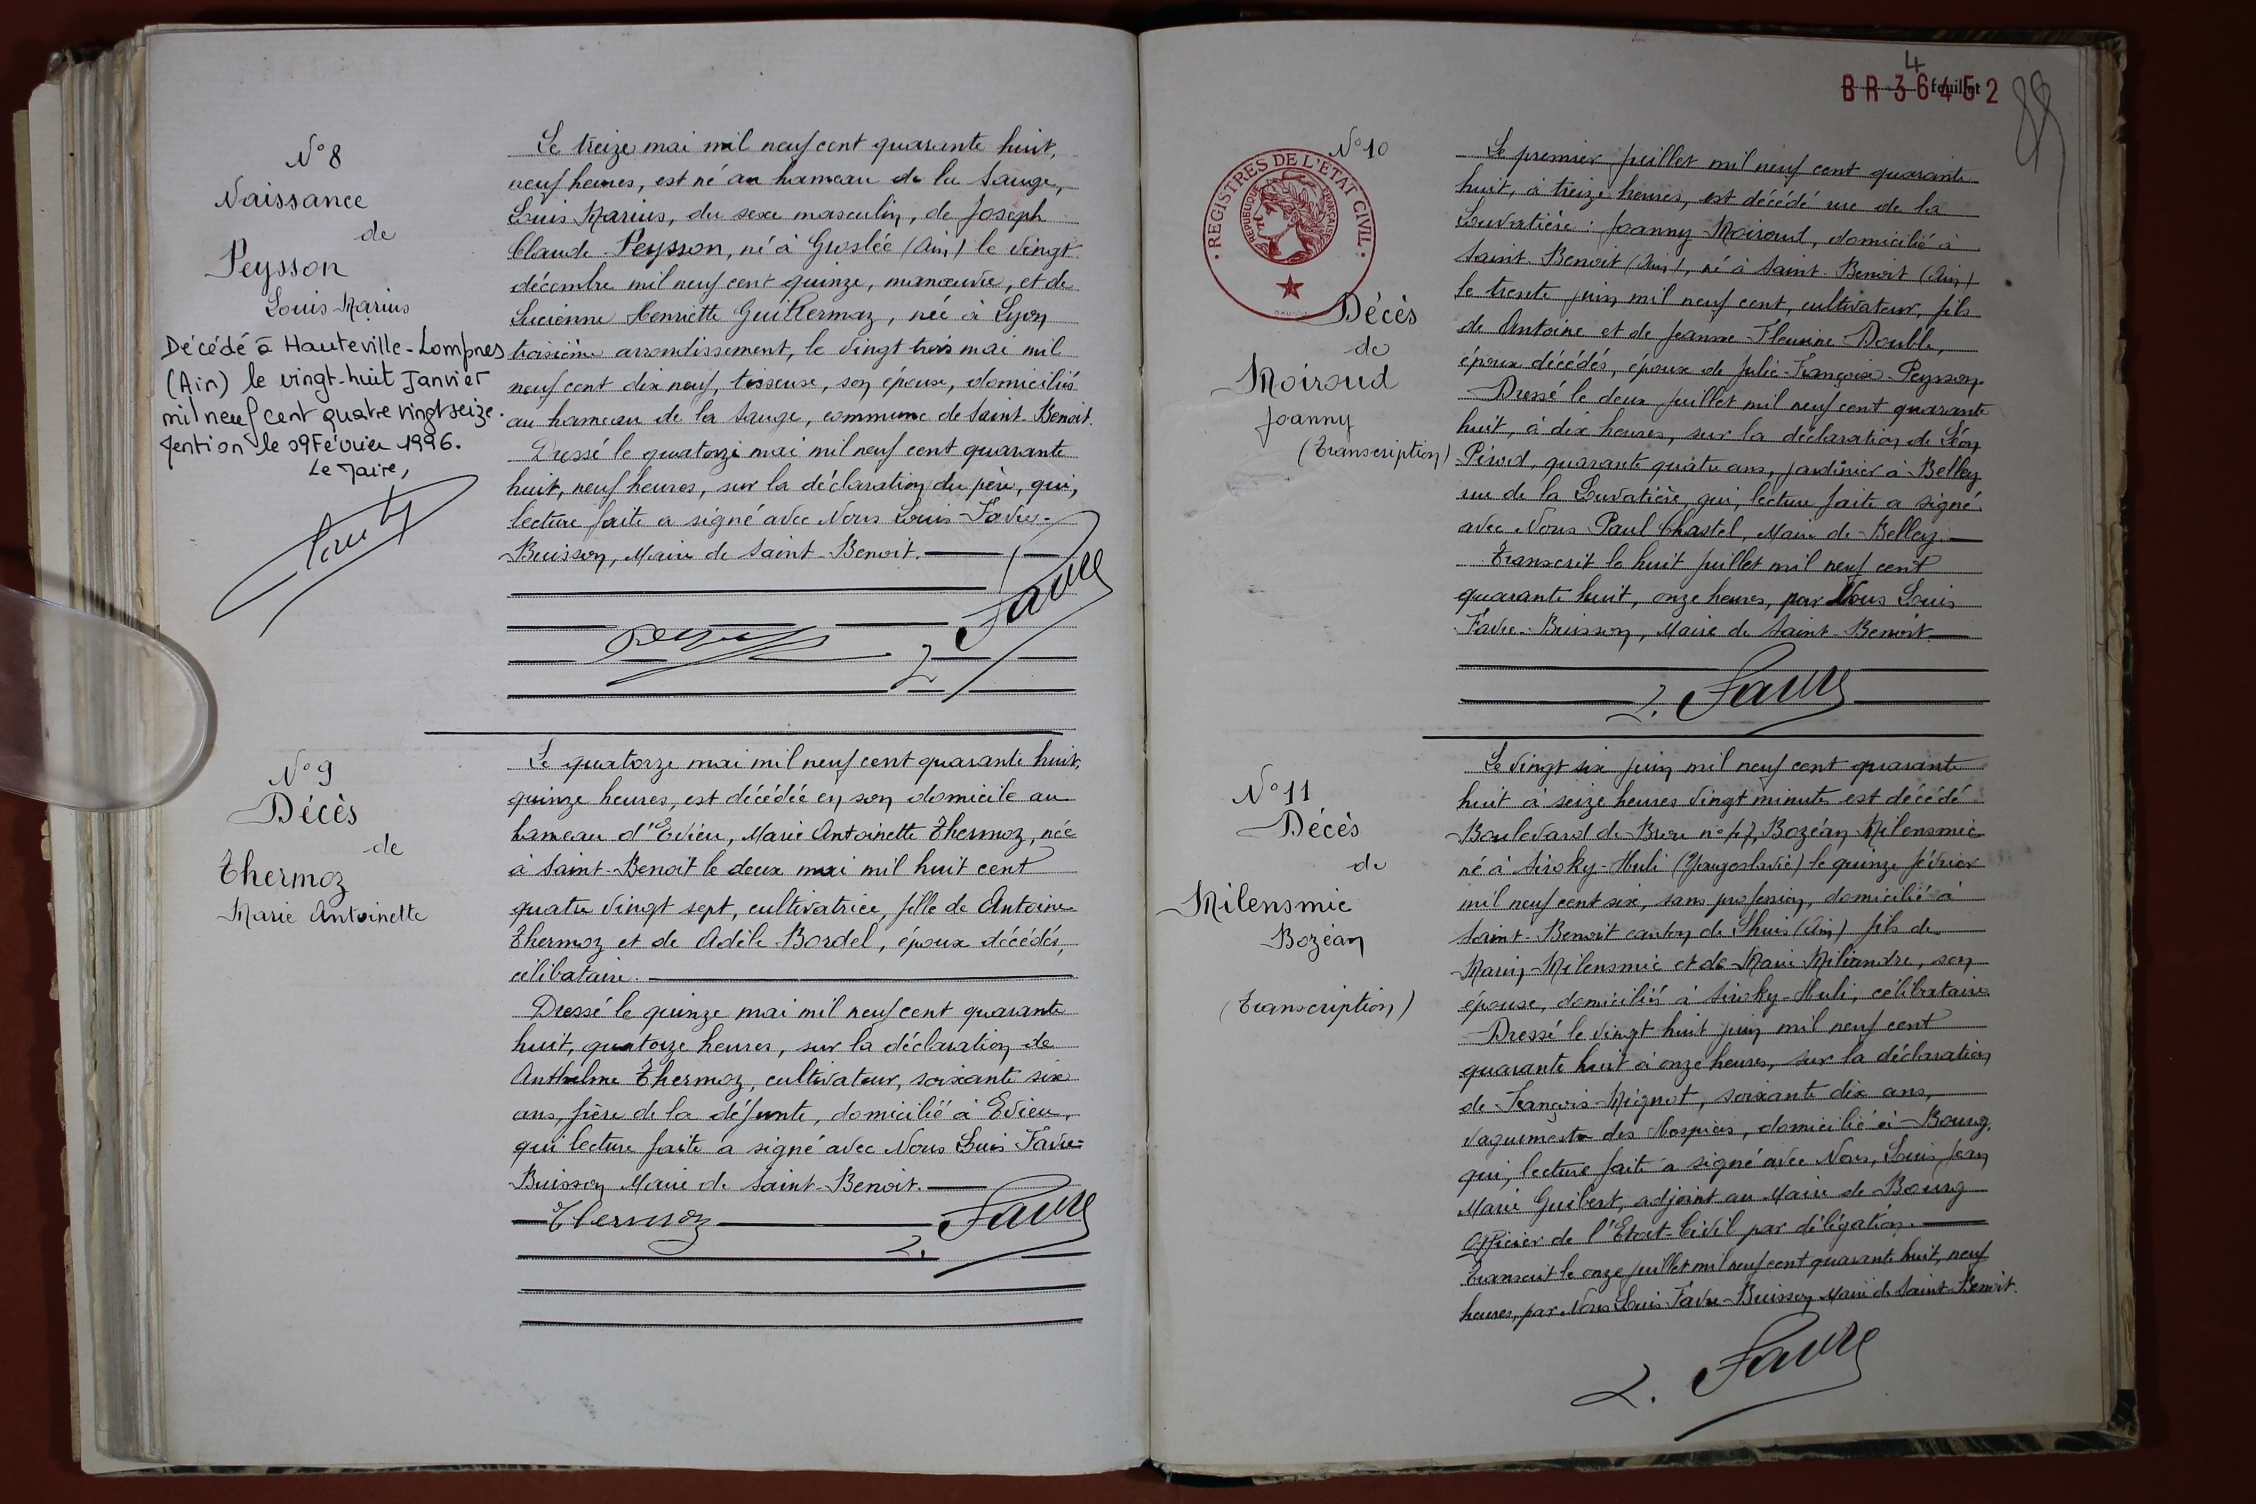 N° 8
Naissance
de
Peysson
Louis-Marius
Décédé à Hauteville-Lompnes
(Ain) le vingt-huit Janvier
mil neuf cent quatre vingt seize.
Mention le 09 Février 1996.
Le Maire,
Le treize mai mil neuf cent quarante huit,
neuf heures, est né au hameau de la Sauge,
Louis Marius, du sexe masculin, de Joseph
Claude Peysson, né à Groslée (Ain) le vingt
décembre mil neuf cent quinze, manœuvre, et de
Lucienne Henriette Guillermaz, née à Lyon
troisième arrondissement, le vingt trois mai mil
neuf cent dix neuf, tisseuse, son épouse, domiciliés
au hameau de la Sauge, commune de Saint-Benoit.
Dressé le quatorze mai mil neuf cent quarante
huit, neuf heures, sur la déclaration du père, qui,
lecture faite a signé avec Nous Louis Favre-
Buisson, Maire de Saint-Benoit.
L. Favre
N° 9
Décès
de
Thermoz
Marie Antoinette
Le quatorze mai mil neuf cent quarante huit,
quinze heures, est décédée en son domicile au
hameau d'Evieu, Marie Antoinette Thermoz, née
à Saint-Benoit le deux mai mil huit cent
quatre vingt sept, cultivatrice, fille de Antoine
Thermoz et de Adèle Bordel, époux décédés,
célibataire.
Dressé le quinze mai mil neuf cent quarante
huit, quatorze heures, sur la déclaration de
Anthelme Thermoz, cultivateur, soixante six
ans, frère de la défunte, domicilié à Evieu,
qui lecture faite a signé avec Nous Louis Favre-
Buisson Maire de Saint-Benoit.
Thermoz
L. Favre
4
feuillet
BR 36452
88
N° 10
REGISTRES DE L'ETAT CIVIL
REPUBLIQUE FRANÇAISE
Décès
de
Moiroud
Joanny
(Transcription)
Le premier juillet mil neuf cent quarante
huit, à treize heures, est décédé rue de la
Louvatière : Joanny Moiroud, domicilié à
Saint-Benoit (Ain), né à Saint-Benoit (Ain)
le trente juin mil neuf cent, cultivateur, fils
de Antoine et de Jeanne-Fleurine Double,
époux décédés, époux de Julie-Françoise Peysson.
Dressé le deux juillet mil neuf cent quarante
huit, à dix heures, sur la déclaration de Léon
Pérod, quarante quatre ans, jardinier à Belley
rue de la Louvatière, qui, lecture faite a signé
avec Nous Paul Chastel, Maire de Belley.
Transcrit le huit juillet mil neuf cent
quarante huit, onze heures, par Nous Louis
Favre-Buisson, Maire de Saint-Benoit.
L. Favre
N° 11
Décès
de
Milensmic
Bozéan
(Transcription)
Le vingt six juin mil neuf cent quarante
huit à seize heures vingt minutes est décédé
Boulevard de Brou n° 47, Bozéan Milensmic
né à Siroky-Huli (Yougoslavie) le quinze février
mil neuf cent six, sans profession, domicilié à
Saint-Benoit canton de Lhuis (Ain) fils de
Marin Milensmic et de Marie Miliandre, son
épouse, domiciliés à Siroky-Huli, célibataire.
Dressé le vingt huit juin mil neuf cent
quarante huit à onze heures, sur la déclaration
de François Mignot, soixante dix ans,
vaguemestre des Hospices, domicilié à Bourg,
qui, lecture faite a signé avec Nous, Louis Jean
Marie Guibert, adjoint au Maire de Bourg
Officier de l'Etat-Civil par délégation.
Transcrit le onze juillet mil neuf cent quarante huit, neuf
heures, par Nous Louis Favre-Buisson Maire de Saint-Benoit.
L. Favre